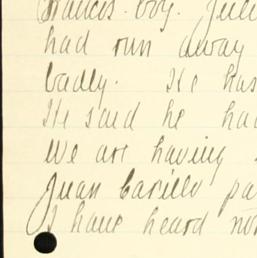 Francis. boy. Juli
had run away
badly. He has
He said he had
We are having
Juan Carillo pa
I have heard no